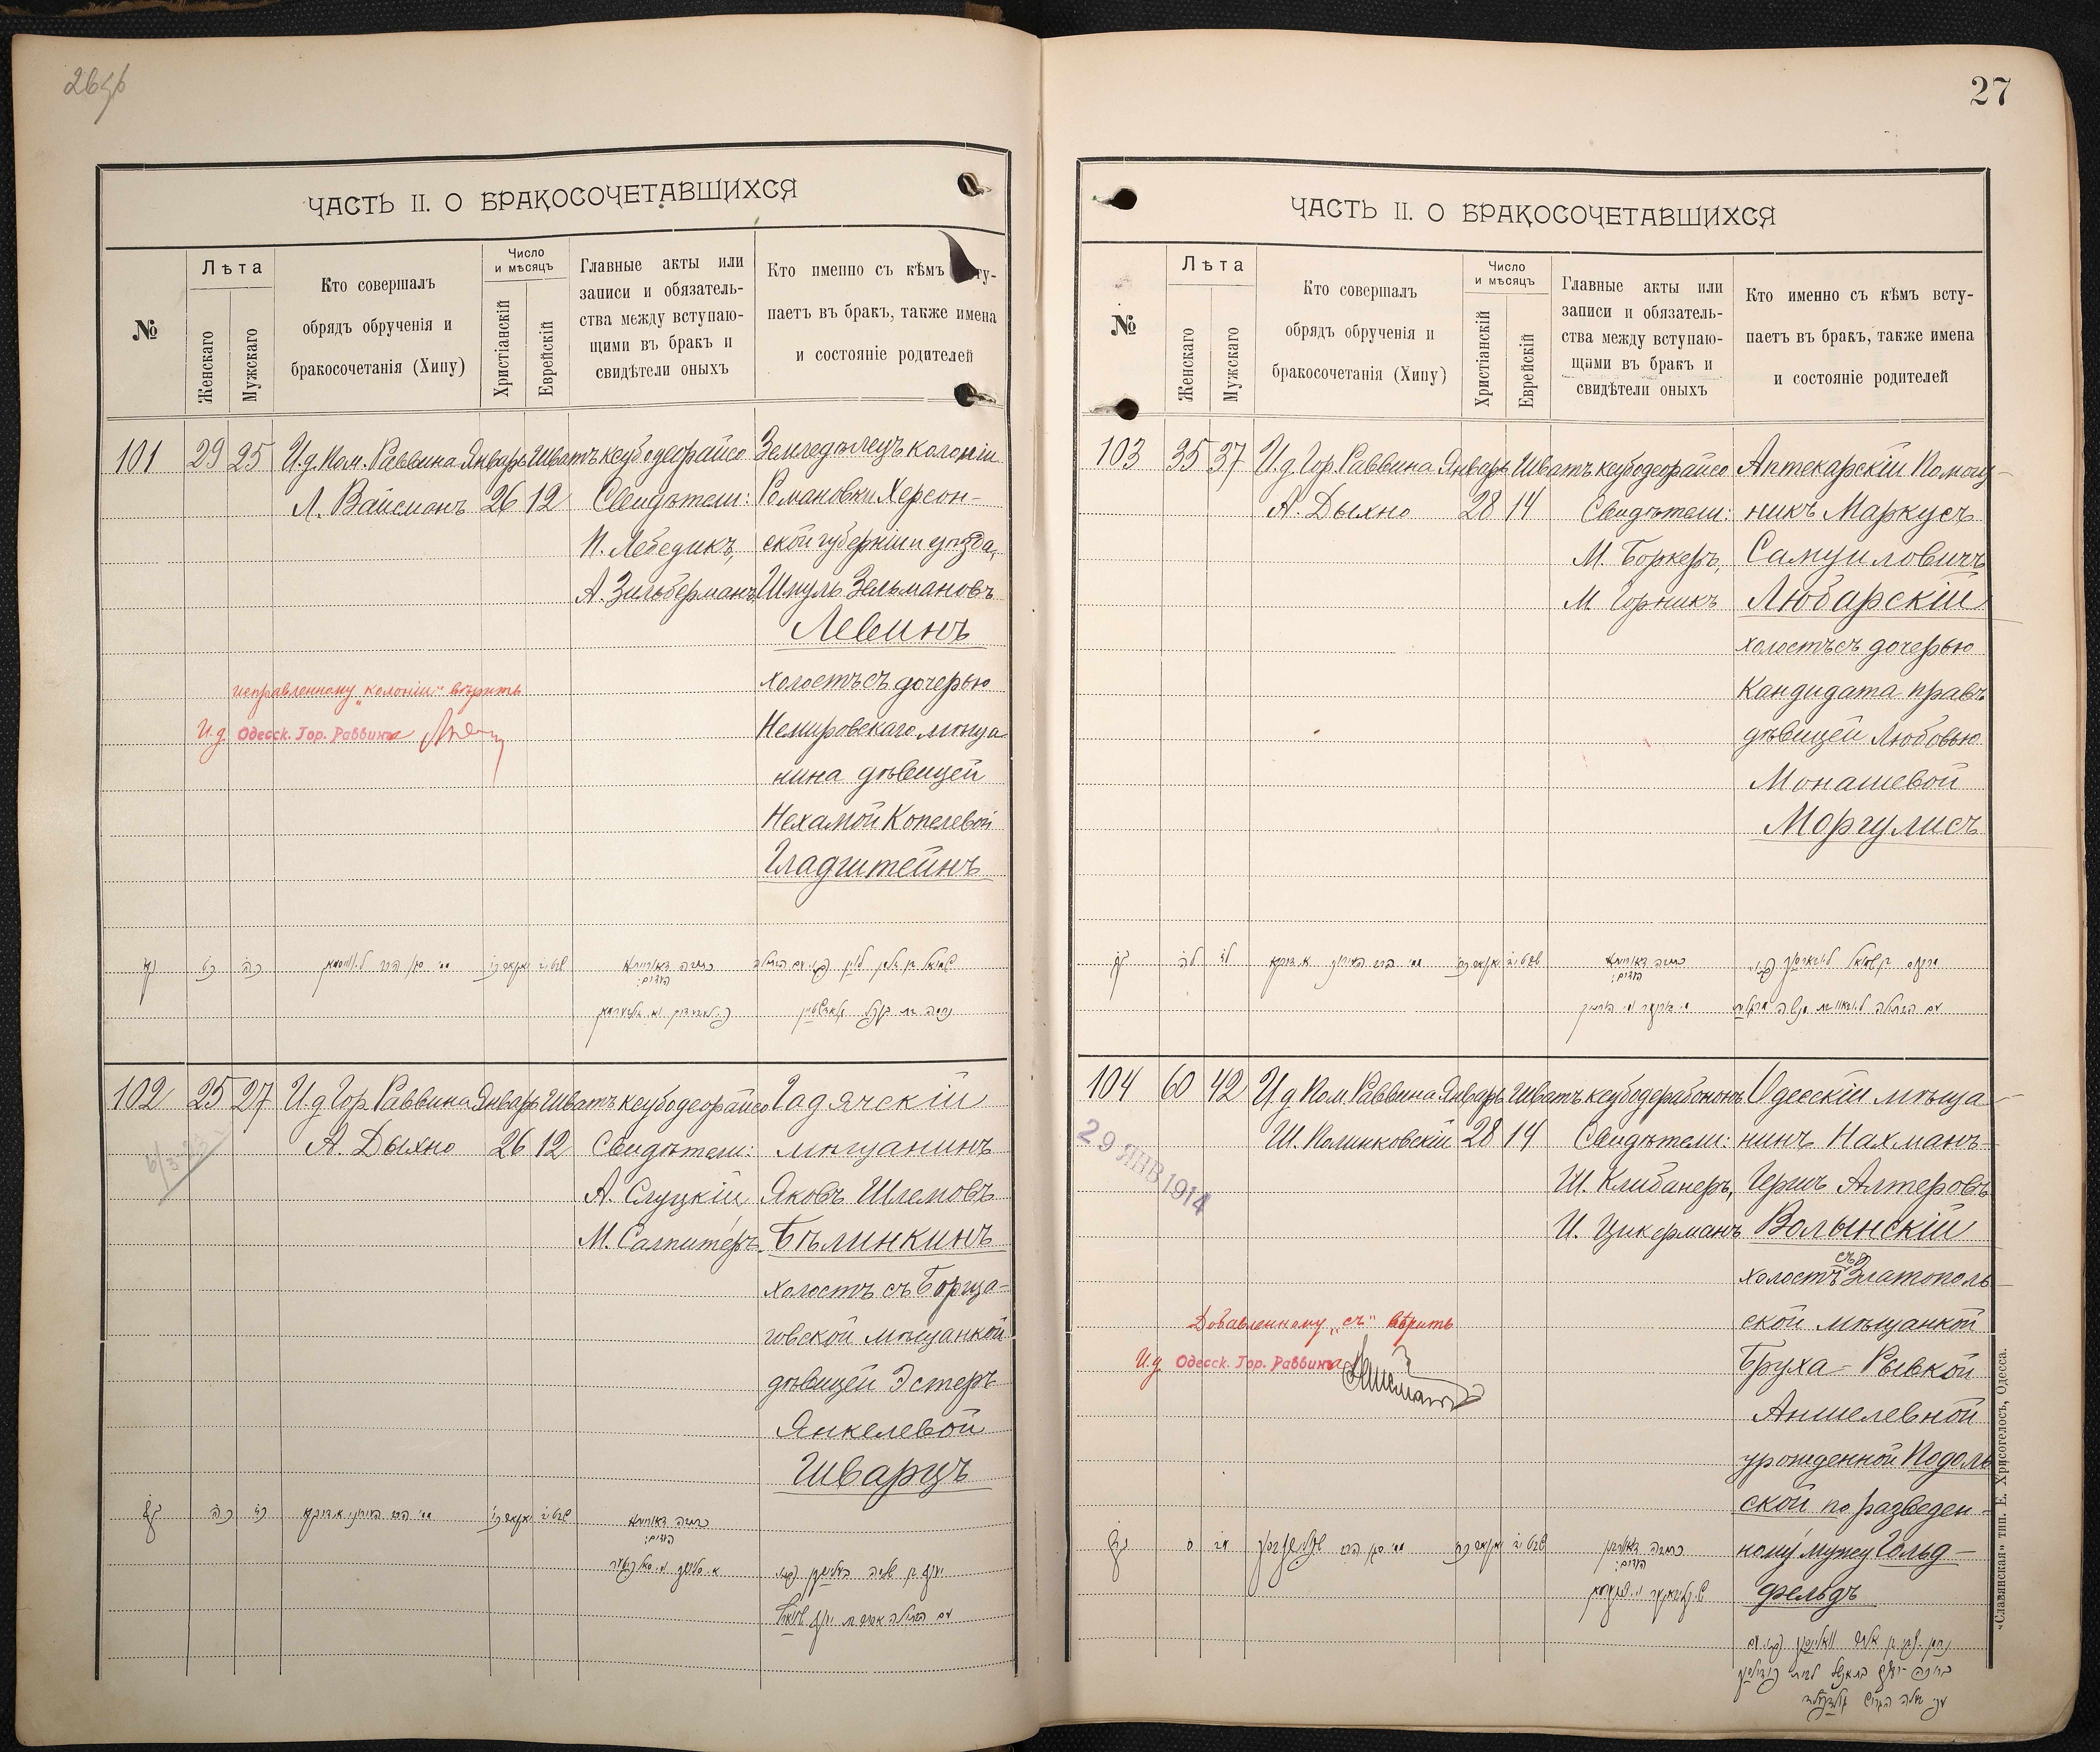 27
ЧАСТЬ II. О БРАКОСОЧЕТАВШИХСЯ
№
Лѣта
Женскаго
Мужскаго
Кто совершалъ
обрядъ обрученія и
бракосочетанія (Хипу)
Число
и мѣсяцъ
Христіанскій
Еврейскій
Главные акты или
записи и обязатель-
ства между вступаю-
щими въ бракъ и
свидѣтели оныхъ
Кто именно съ кѣмъ
паетъ въ бракъ, также имена
и состояніе родителей
101 29 25 И.д. Пом. Раввина Январь Шватъ ксубодеорайсо Земледѣлецъ колоніи
Л. Вайсманъ 26 12 Свидѣтели: Романовки Херсон-
П. Лебедикъ, ской губерніи и уѣзда,
А. Зильберманъ Шмуль Зельмановъ
Левинъ
холостъ съ дочерью
Немировскаго мѣща
нина дѣвицей
Нехамой Копелевой
Гладштейнъ
исправленному „колоніи" вѣрить
И.д. Одесск. Гор. Раввина
102 25 27 И.д. Гор. Раввина Январь Шватъ ксубодеорайсо Гадячскій
А. Дыхно 26 12 Свидѣтели: мѣщанинъ
А. Слуцкій, Яковъ Шлемовъ
М. Салпитеръ. Бѣлинкинъ
холостъ съ Борща-
говской мѣщанкой
дѣвицей Эстеръ
Янкелевой
Шварцъ
ЧАСТЬ II. О БРАКОСОЧЕТАВШИХСЯ
№
Лѣта
Женскаго
Мужскаго
Кто совершалъ
обрядъ обрученія и
бракосочетанія (Хипу)
Число
и мѣсяцъ
Христіанскій
Еврейскій
Главные акты или
записи и обязатель-
ства между вступаю-
щими въ бракъ и
свидѣтели оныхъ
Кто именно съ кѣмъ всту-
паетъ въ бракъ, также имена
и состояніе родителей
103 35 37 И.д. Гор. Раввина Январь Шватъ ксубодеорайсо Аптекарскій Помощ-
А. Дыхно 28 14 Свидѣтели: никъ Маркусъ
М. Боркеръ, Самуиловичъ
М. Горникъ Любарскій
холостъ съ дочерью
Кандидата правъ
дѣвицей Любовью
Монашевой
Моргулисъ
104 60 42 И.д. Пом. Раввина Январь Шватъ ксубодерабононъ Одесскій мѣща-
Ш. Полинковскій 28 14 Свидѣтели: нинъ Нахманъ-
29 ЯНВ 1914
Ш. Клибанеръ, Гершъ Алтеровъ
И. Цикерманъ Волынскій
съ
холостъ Златополь-
ской мѣщанкой
Бруха-Рывкой
Аншелевной
урожденной Подоль
ской по разведен-
ному мужу Гольд-
фельдъ
Добавленному „съ" вѣрить
И.д. Одесск. Гор. Раввина
«Славянская» тип. Е. Хрисогелосъ, Одесса.